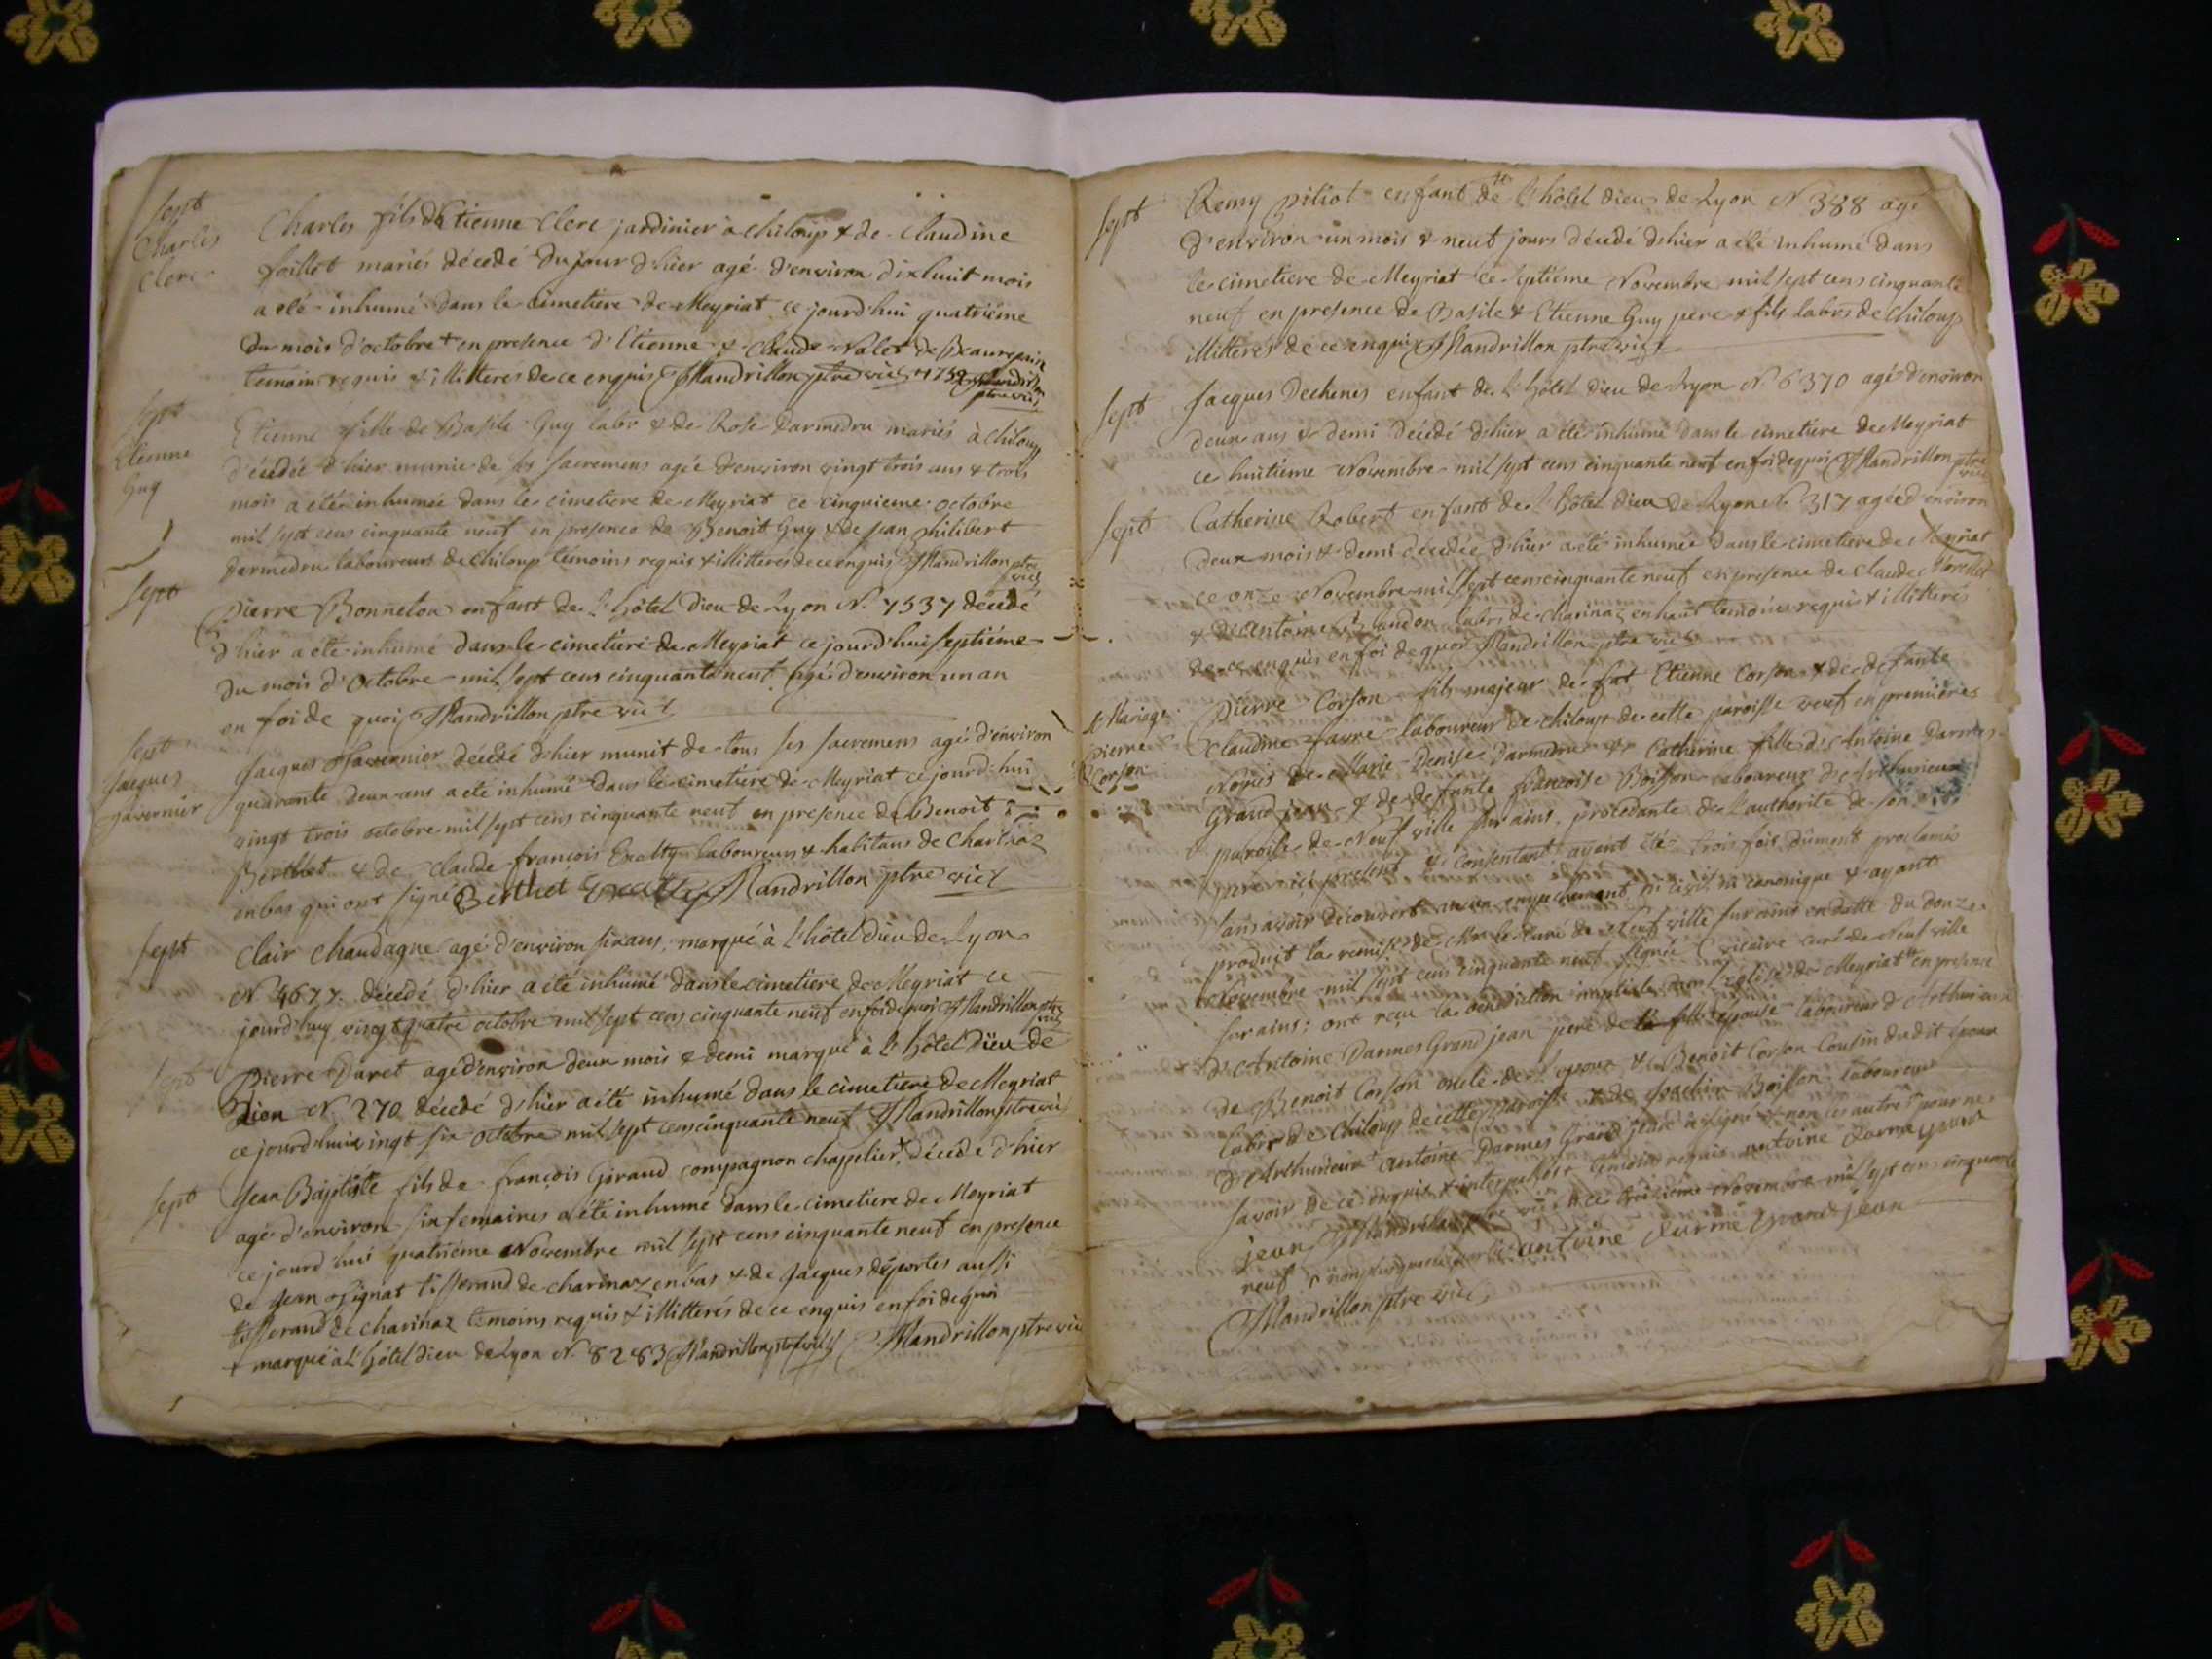 Sept
Charles
Clerc
Charles fils d'Etienne Clerc jardinier à chiloup & de Claudine
foillet mariés décédé du jour d'hier agé d'environ dixhuit mois
a été inhumé dans le cimetiere de Meyriat ce jourd'hui quatriéme
du mois d'octobre + en presence d'Etienne & Claude Valet de Beaurepaire
temoins requis & illitteres de ce enquis Mandrillon ptre vic + 1759 Mandrillon
ptre vic
Sept
Etienne
Guy
Etienne fille de Basile Guy labr & de Rose Darmedru mariés à chiloup
décédée d'hier munie de ses sacremens agée d'environ vingt trois ans & trois
mois a été inhumée dans le cimetiere de Meyriat ce cinquieme octobre
mil sept cens cinquante neuf en presence de Benoit Guy & de jean philibert
Darmedru laboureurs de chiloup témoins requis & illitterés de ce enquis Mandrillon ptre
vic
Sept
Pierre Bonneton enfant de l'hôtel dieu de Lyon N. 7537 décédé
d'hier a été inhumé dans le cimetiere de Meyriat ce jourd'hui septiéme
du mois d'octobre mil sept cens cinquante neuf agé d'environ un an
en foi de quoi Mandrillon ptre vic
Sept
Jacques
favernier
Jacques favernier décédé d'hier munit de tous ses sacremens agé d'environ
quarante deux ans a été inhumé dans le cimetiere de Meyriat ce jourd'hui
vingt trois octobre mil sept cens cinquante neuf en presence de Benoit
Berthet & de Claude françois laboureurs & habitans de Charinaz
enbas qui ont signé Berthet Mandrillon ptre vic
Sept
Clair Chaudagne agé d'environ six ans, marqué à l'hôtel dieu de Lyon
N. 4677. décédé d'hier a été inhumé dans le cimetiere de Meyriat ce
jourd'huy vingt quatre octobre mil sept cens cinquante neuf en foi de quoi Mandrillon ptre
vic
Sept
Pierre Daret agé d'environ deux mois & demi marqué à l'hôtel Dieu de
Lion N. 270 décédé d'hier a été inhumé dans le cimetiere de Meyriat
ce jourd'hui vingt six octobre mil sept cens cinquante neuf Mandrillon ptre vic
Sept
Jean Baptiste fils de françois Giraud compagnon chappelier + décédé d'hier
agé d'environ six semaines a été inhumé dans le cimetiere de Meyriat
ce jourd'hui quatriéme Novembre mil sept cens cinquante neuf en presence
de Jean tisserand de charinaz enbas & de Jacques désportes aussi
tisserand de charinaz temoins requis & illitterés de ce enquis en foi de quoi
+ marqué à l'hôtel dieu de Lyon N. 8283 Mandrillon ptre vic Mandrillon ptre vic
Sept
Remy pitiot enfant de l'hôtel dieu de Lyon N 388 agé
d'environ un mois & neuf jours décédé d'hier a été inhumé dans
le cimetiere de Meyriat ce septiéme Novembre mil sept cens cinquante
neuf en presence de Basile & Etienne Guy père & fils labrs de chiloup
illitterés de ce enquis Mandrillon ptre vic
Sept
Jacques Dechenes enfant de l'hôtel dieu de Lyon N. 6370 agé d'environ
deux ans & demi décédé d'hier a été inhumé dans le cimetiere de Meyriat
ce huitieme Novembre mil sept cens cinquante neuf en foi de quoi Mandrillon ptre
vic
Sept
Catherine Robert enfant de l'hôtel dieu de Lyon N. 317 agée d'environ
deux mois & demi décédée d'hier a été inhumée dans le cimetiere de Meyriat
ce onze Novembre mil sept cens cinquante neuf en presence de Claude
& labrs de charinaz enhaut temoins requis & illitterés
de ce enquis en foi de quoi Mandrillon ptre vic
Mariage
pierre
Corson
Pierre Corson fils majeur de fut Etienne Corson & de defunte
Claudine favre laboureur de chiloup de cette paroisse veuf en premières
Nopces de Marie Denise Darmedru & Catherine fille d'Antoine Darmes
Grand jean & de defunte françoise Boisson laboureur d'Arthurieux
paroisse de Neuf ville sur ains, procédante de l'authorité de son
pere içi présent & consentant, ayant été trois fois dûment proclamés
sans avoir découvert aucun empechement ni civil ni canonique & ayant
produit la remise de Mr le curé de Neuf ville sur ains en datte du douze
Novembre mil sept cens cinquante neuf signée vicaire curé de Neuf ville
sur ains; ont reçu la bénédiction nuptiale dans l'eglise de Meyriat en presence
d'Antoine Darmes Grand jean pere de la fille épouse laboureur d'Arthurieux
de Benoit Corson oncle de l'epoux & Benoit Corson Cousin dudit époux
labrs de chiloup de cette paroisse & de Joachim Boisson laboureur
d'Arthurieux Antoine Darmes Grand jean a signé & non les autres pour ne
savoir de ce enquis & interpellés temoins requis antoine darme grand
jean Mandrillon ptre vic ce treiziéme Novembre mil sept cens cinquante
neuf antoine darme grand jean
Mandrillon ptre vic